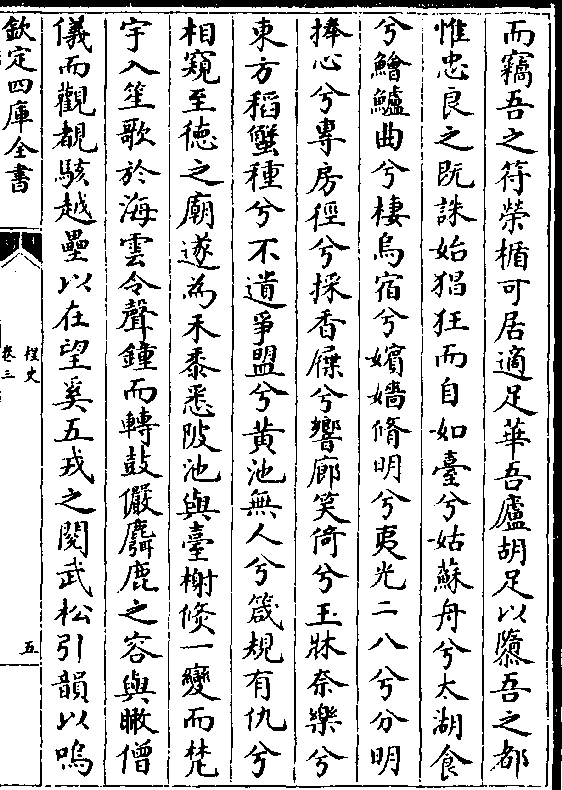 而竊吾之符榮楯可居適足華吾廬胡足以隳吾之都
惟忠良之既誅始猖狂而自如臺兮姑蘇舟兮太湖食
兮鱠鱸曲兮棲烏宿兮嬪嬙脩明兮夷光二八兮分明
捧心兮專房徑兮採香屧兮響廊笑倚兮玉牀奈樂兮
東方稻蟹種兮不遺爭盟兮黄池無人兮箴規有仇兮
相窺至徳之廟遂為禾黍悉陂池與臺榭倏一變而梵
宇入笙歌於海雲令聲鐘而轉鼓儼麛鹿之容與瞰僧
儀而觀覩駭越壘以在望奚五戎之閱武松引韻以嗚
欽定四庫全書
桯史
卷三
五